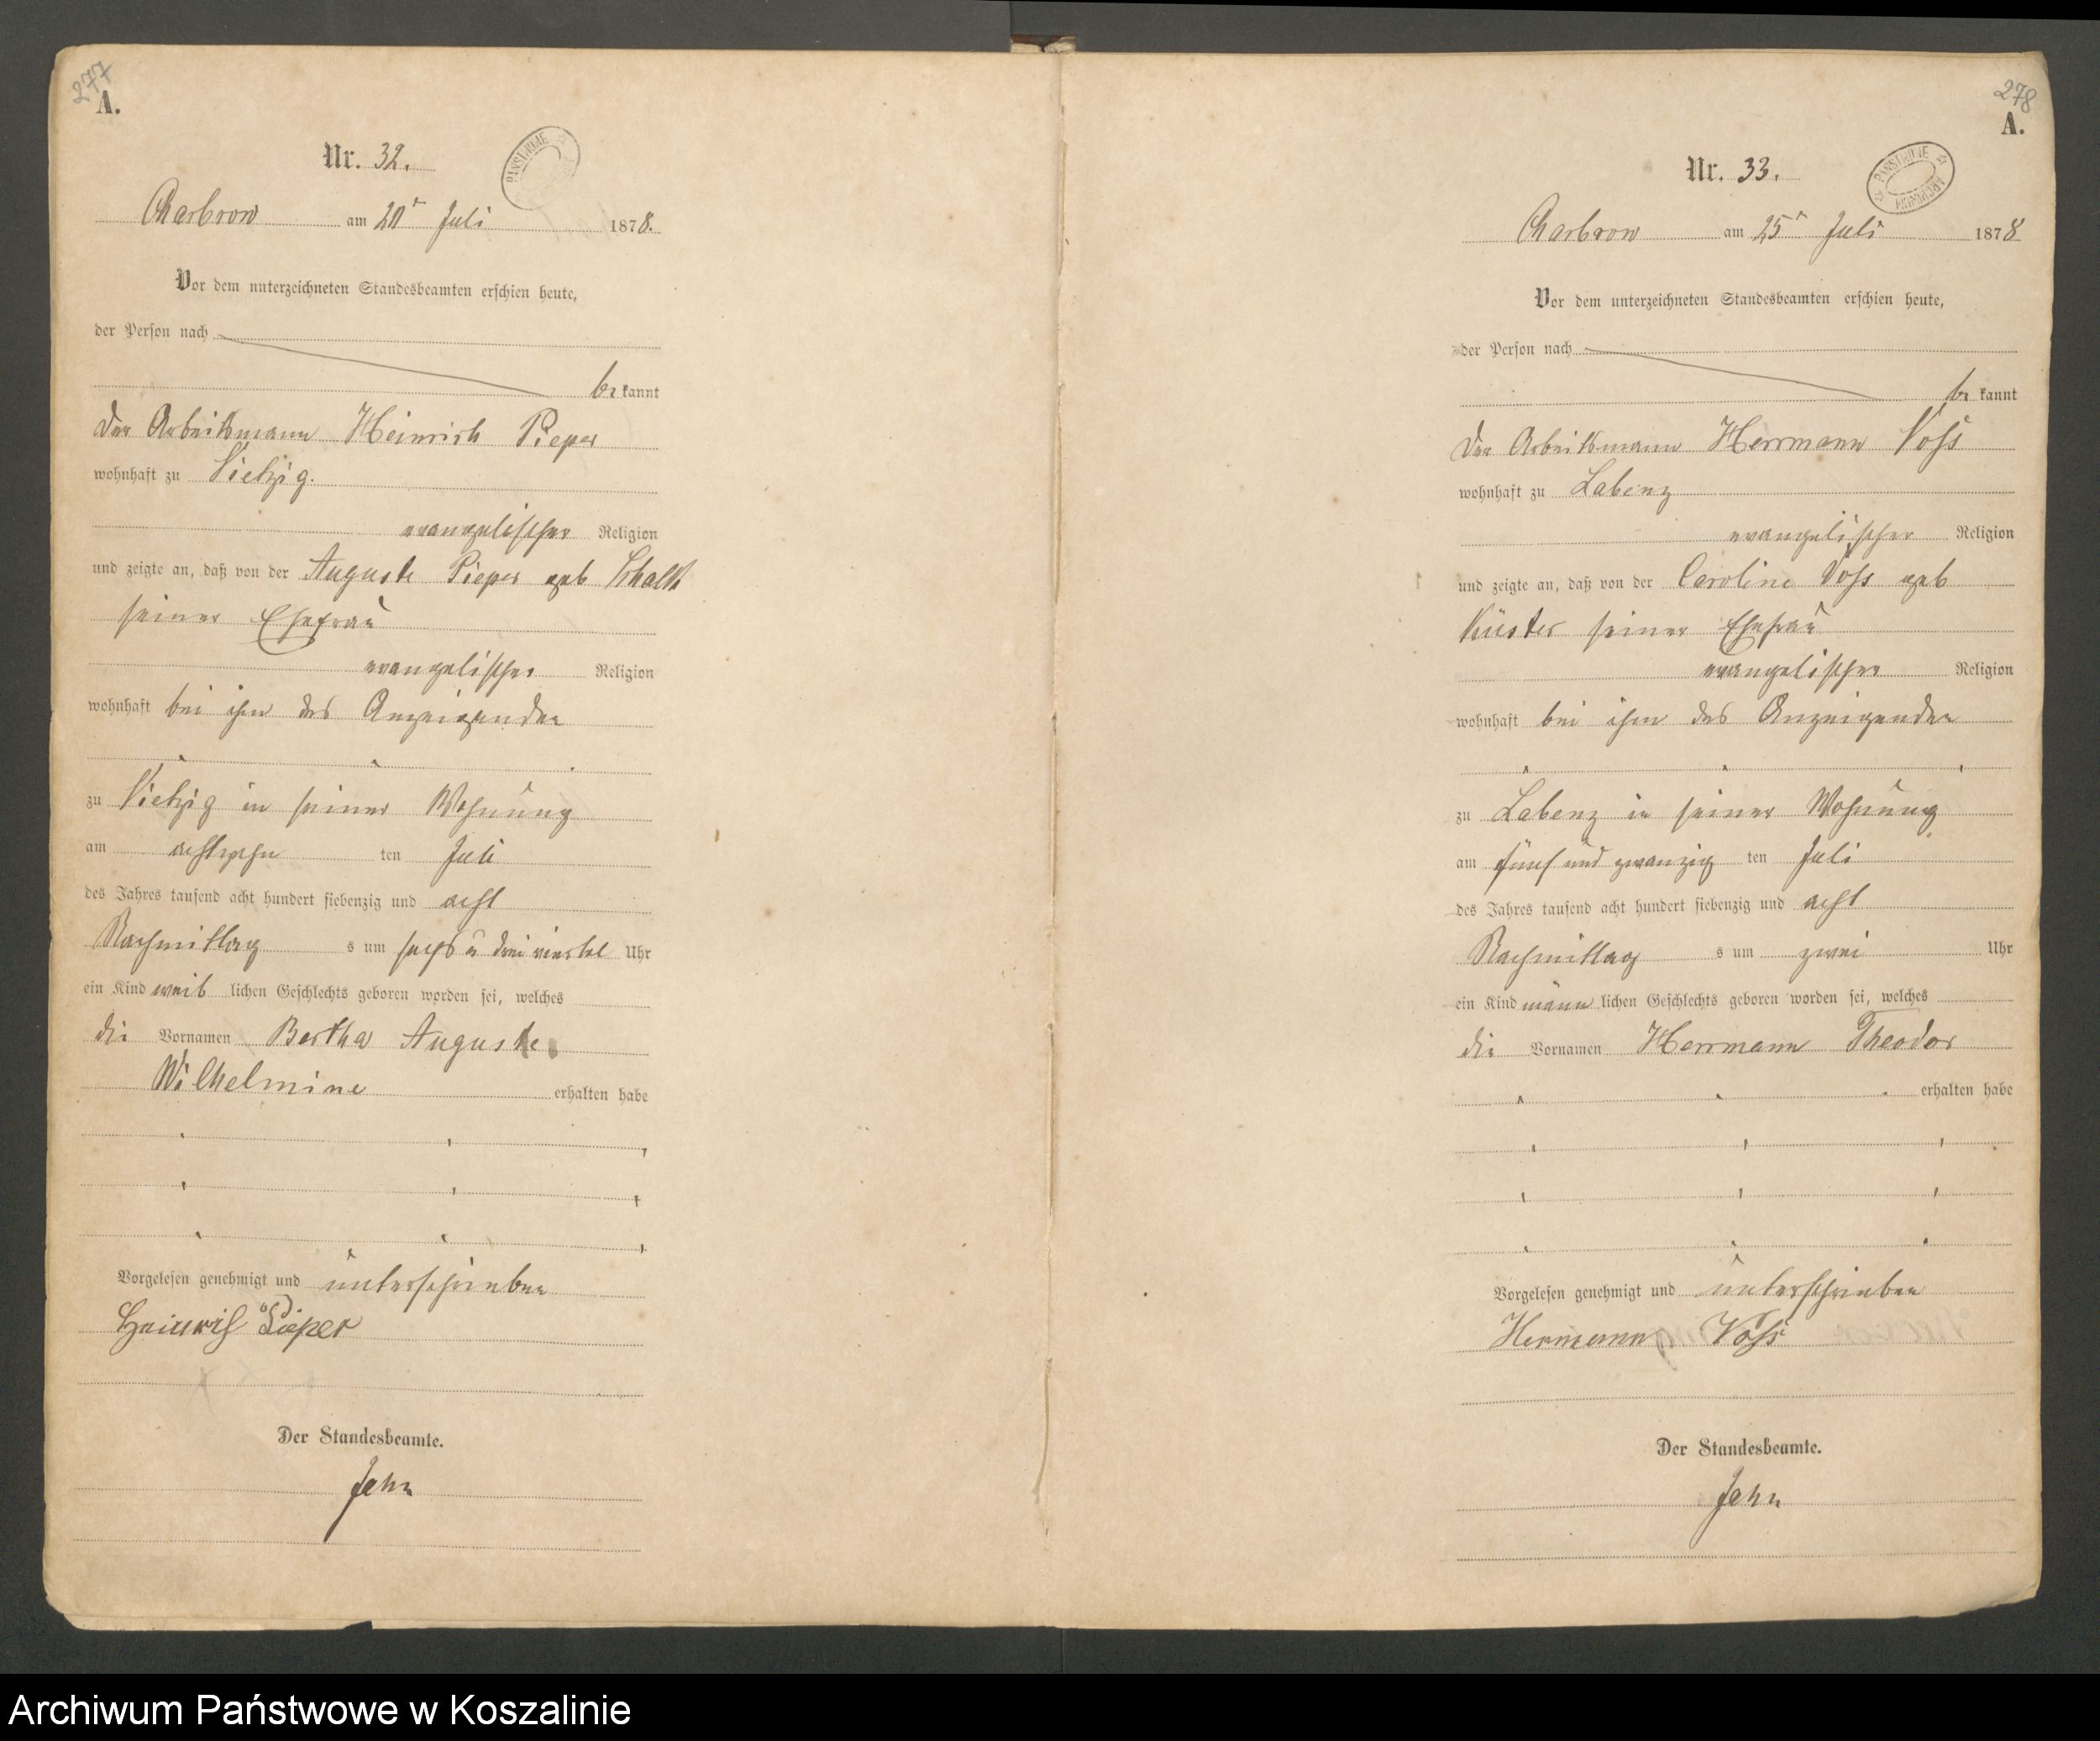 277
A.
Nr. 32.
PAŃSTWOWE
Charbrow am 20t Juli 1878.
Vor dem unterzeichneten Standesbeamten erschien heute,
der Person nach
be kannt
der Arbeitsmann Heinrich Pieper
wohnhaft zu Vietzig.
evangelischer Religion
und zeigte an, daß von der Auguste Pieper geb Schalk
seiner Ehefrau
evangelischer Religion
wohnhaft bei ihm des Anzeigenden
zu Vietzig in seiner Wohnung
am achtzehn ten Juli
des Jahres tausend acht hundert siebenzig und acht
Nachmittag s um sechs u drei viertel Uhr
ein Kind weib lichen Geschlechts geboren worden sei, welches
die Vornamen Bertha Auguste
Wilhelmine erhalten habe
Vorgelesen genehmigt und unterschrieben
Heinrich Pieper
Der Standesbeamte.
Jahn
278
A.
Nr. 33.
ARCHIWUM PAŃSTWOWE
Charbrow am 25t Juli 1878
Vor dem unterzeichneten Standesbeamten erschien heute,
der Person nach
be kannt
der Arbeitsmann Herrmann Voss
wohnhaft zu Labenz
evangelischer Religion
und zeigte an, daß von der Caroline Voss geb
Küster seiner Ehefrau
evangelischer Religion
wohnhaft bei ihm des Anzeigenden
zu Labenz in seiner Wohnung
am fünf und zwanzig ten Juli
des Jahres tausend acht hundert siebenzig und acht
Nachmittag s um zwei Uhr
ein Kind männ lichen Geschlechts geboren worden sei, welches
die Vornamen Herrmann Theodor
erhalten habe
Vorgelesen genehmigt und unterschrieben
Hermann Voss
Der Standesbeamte.
Jahn
Archiwum Państwowe w Koszalinie